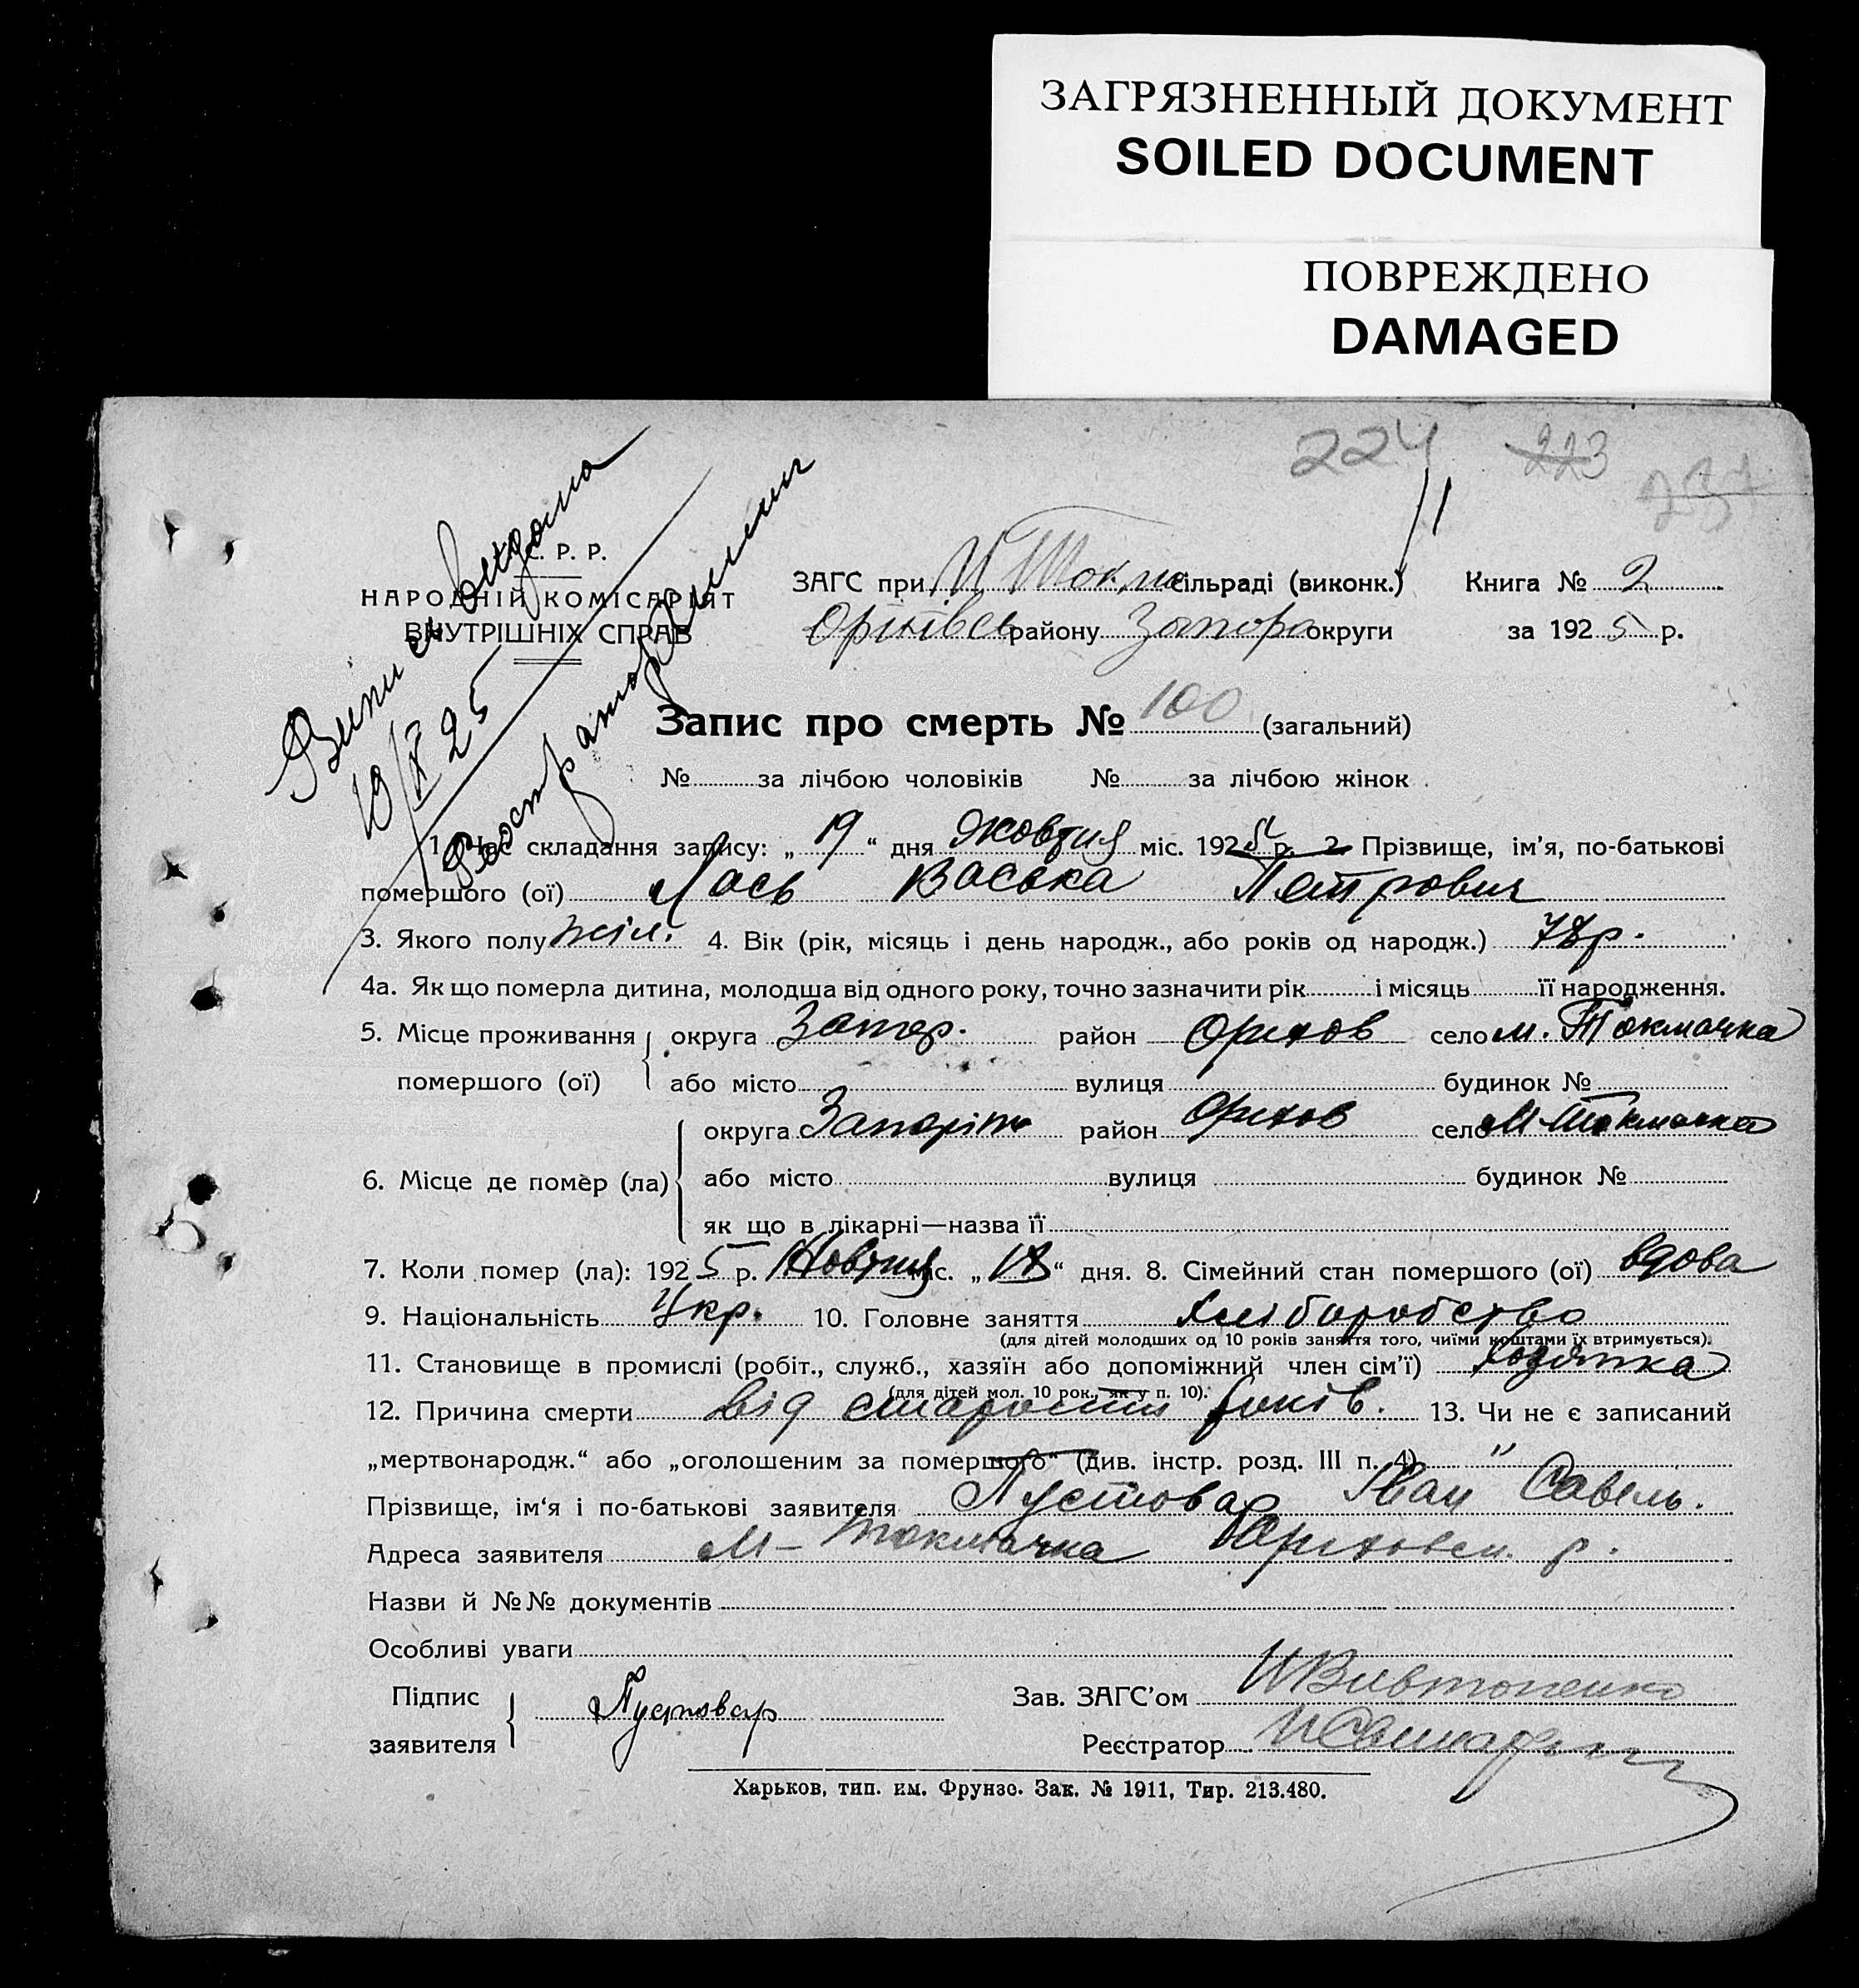 ЗАГРЯЗНЕННЫЙ ДОКУМЕНТ
SOILED DOCUMENT
ПОВРЕЖДЕНО
DAMAGED
224 223
Випись видана
10/X 25
С. Р. Р.
НАРОДНІЙ КОМІСАРІЯТ
ВНУТРІШНІХ СПРАВ
ЗАГС при М Токма сільраді (виконк.) Книга № 2
Оріхівсь району Запора округи за 1925 р.
Запис про смерть № 100 (загальний)
№ за лічбою чоловіків № за лічбою жінок
1. Час складання запису: „19“ дня Жовтня міс. 1925 р. 2. Прізвище, ім'я, по-батькові
помершого (ої) Лась Васька Петрович
3. Якого полу 4. Вік (рік, місяць і день народж., або років од народж.) 78р.
4а. Як що померла дитина, молодша від одного року, точно зазначити рік і місяць її народження.
5. Місце проживання округа Запор. район Орихов село М. Токмачка
помершого (ої) або місто вулиця будинок №
округа район Орихов село М-Токмачка
6. Місце де помер (ла) або місто вулиця будинок №
як що в лікарні—назва її
7. Коли помер (ла): 1925 р. Жовтня міс. „18“ дня. 8. Сімейний стан помершого (ої) вдова
9. Національність Укр. 10. Головне заняття хліборобство
(для дітей молодших од 10 років заняття того, чиїми коштами їх втримується).
11. Становище в промислі (робіт., служб., хазяїн або допоміжний член сім'ї)
(для дітей мол. 10 рок., як у п. 10).
12. Причина смерти від старости років. 13. Чи не є записаний
„мертвонародж.“ або „оголошеним за помершого“ (див. інстр. розд. III п. 4) "
Прізвище, ім'я і по-батькові заявителя Пустовар Іван Савель.
Адреса заявителя М-Токмачка Ориховск. р.
Назви й №№ документів
Особливі уваги
Підпис
заявителя Пустовар
Зав. ЗАГС'ом
Реєстратор
Харьков, тип. им. Фрунзе. Зак. № 1911, Тир. 213.480.